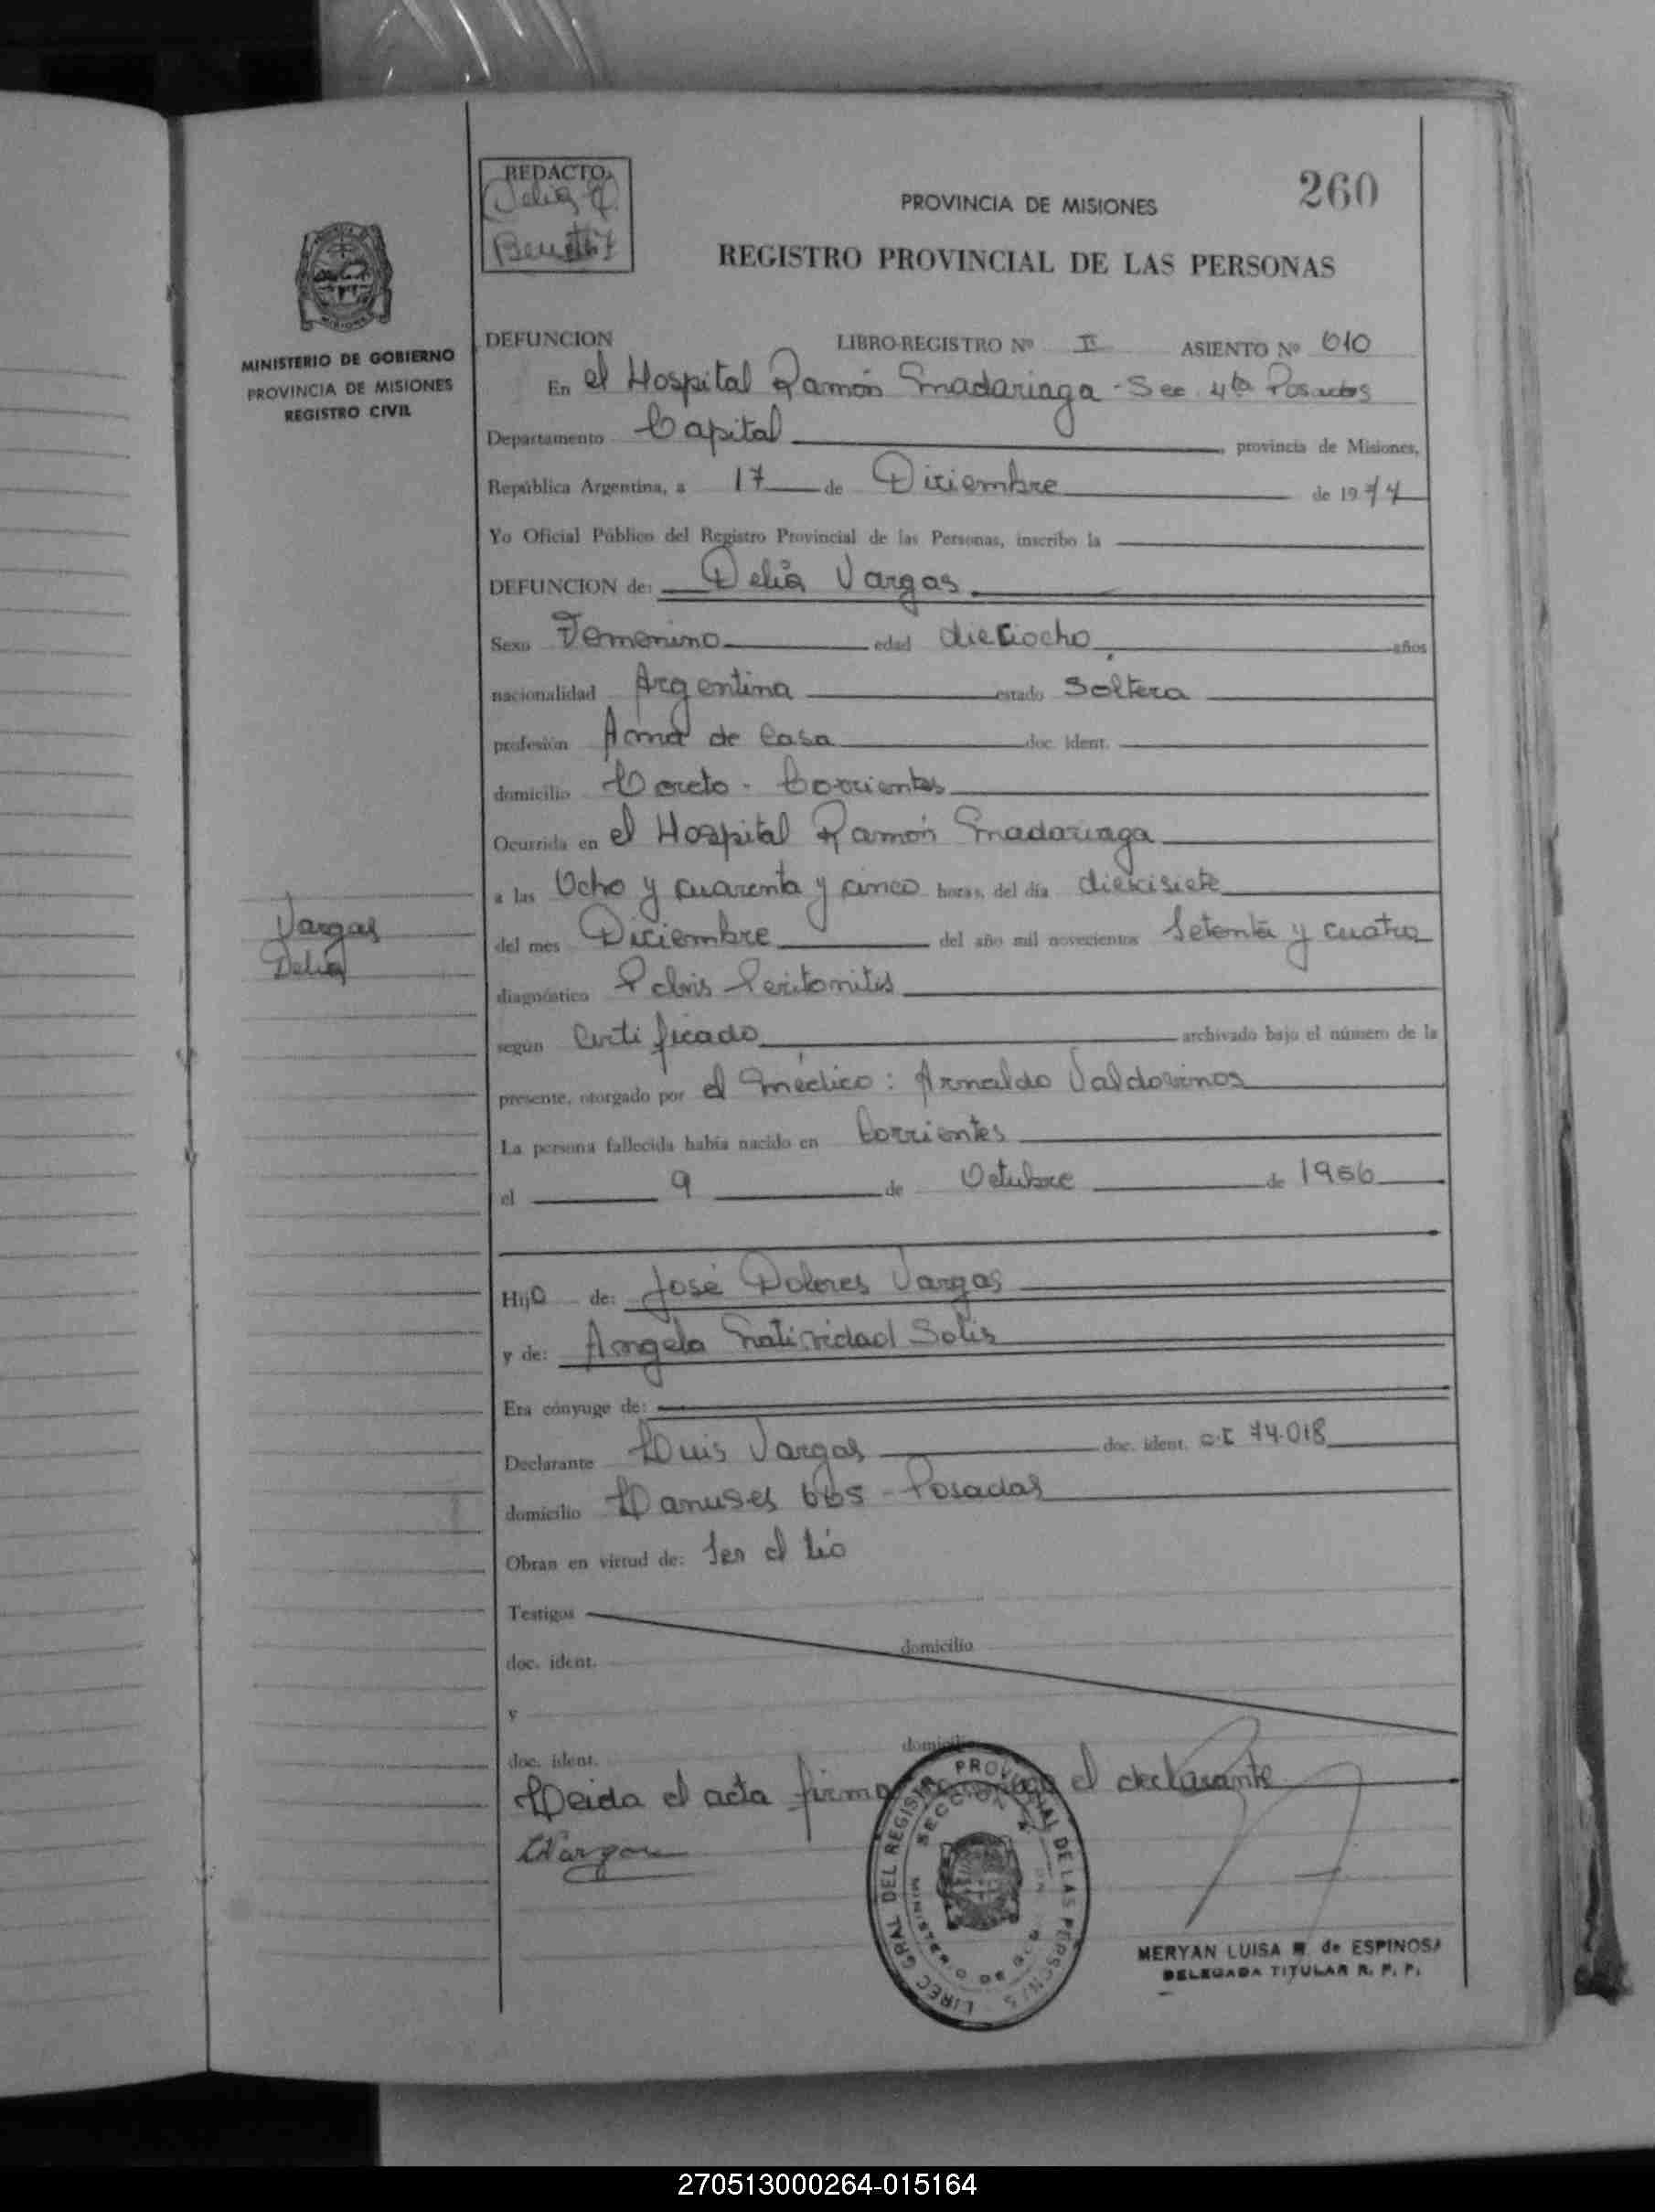 REDACTO
Delia
260
PROVINCIA DE MISIONES
REGISTRO PROVINCIAL DE LAS PERSONAS
MINISTERIO DE GOBIERNO
PROVINCIA DE MISIONES
REGISTRO CIVIL
DEFUNCION LIBRO-REGISTRO Nº II ASIENTO Nº 610
En el Hospital Ramón Madariaga - Sec 4ta Posadas
Departamento Capital, provincia de Misiones,
República Argentina, a 17 de Diciembre de 1974
Yo Oficial Público del Registro Provincial de las Personas, inscribo la
DEFUNCION de: Delia Vargas
Sexo Femenino edad dieciocho años
nacionalidad Argentina estado Soltera
profesión Ama de Casa doc. ident.
domicilio Loreto - Corrientes
Ocurrida en el Hospital Ramón Madariaga
a las Ocho y cuarenta y cinco horas, del día diecisiete
Vargas
Delia
del mes Diciembre del año mil novecientos Setenta y cuatro
diagnóstico Pelvis Peritonitis
según Certificado archivado bajo el número de la
presente, otorgado por el médico: Arnaldo Valdovinos
La persona fallecida había nacido en Corrientes
el 9 de Octubre de 1956
Hijo de: José Dolores Vargas
y de: Angela Natividad Solis
Era cónyuge de:
Declarante Luis Vargas doc. ident. C.I 74.018
domicilio Lanuses 665 - Posadas
Obran en virtud de: Ser el tío
Testigos
doc. ident. domicilio
y
doc. ident. domicilio
Leida el acta firma el declarante
LVargas
DIREC GRAL DEL REGISTRO PROVINCIAL DE LAS PERSONAS
SECCION 4
MINISTERIO DE
MERYAN LUISA R. de ESPINOSA
DELEGADA TITULAR R. P. P.
270513000264-015164